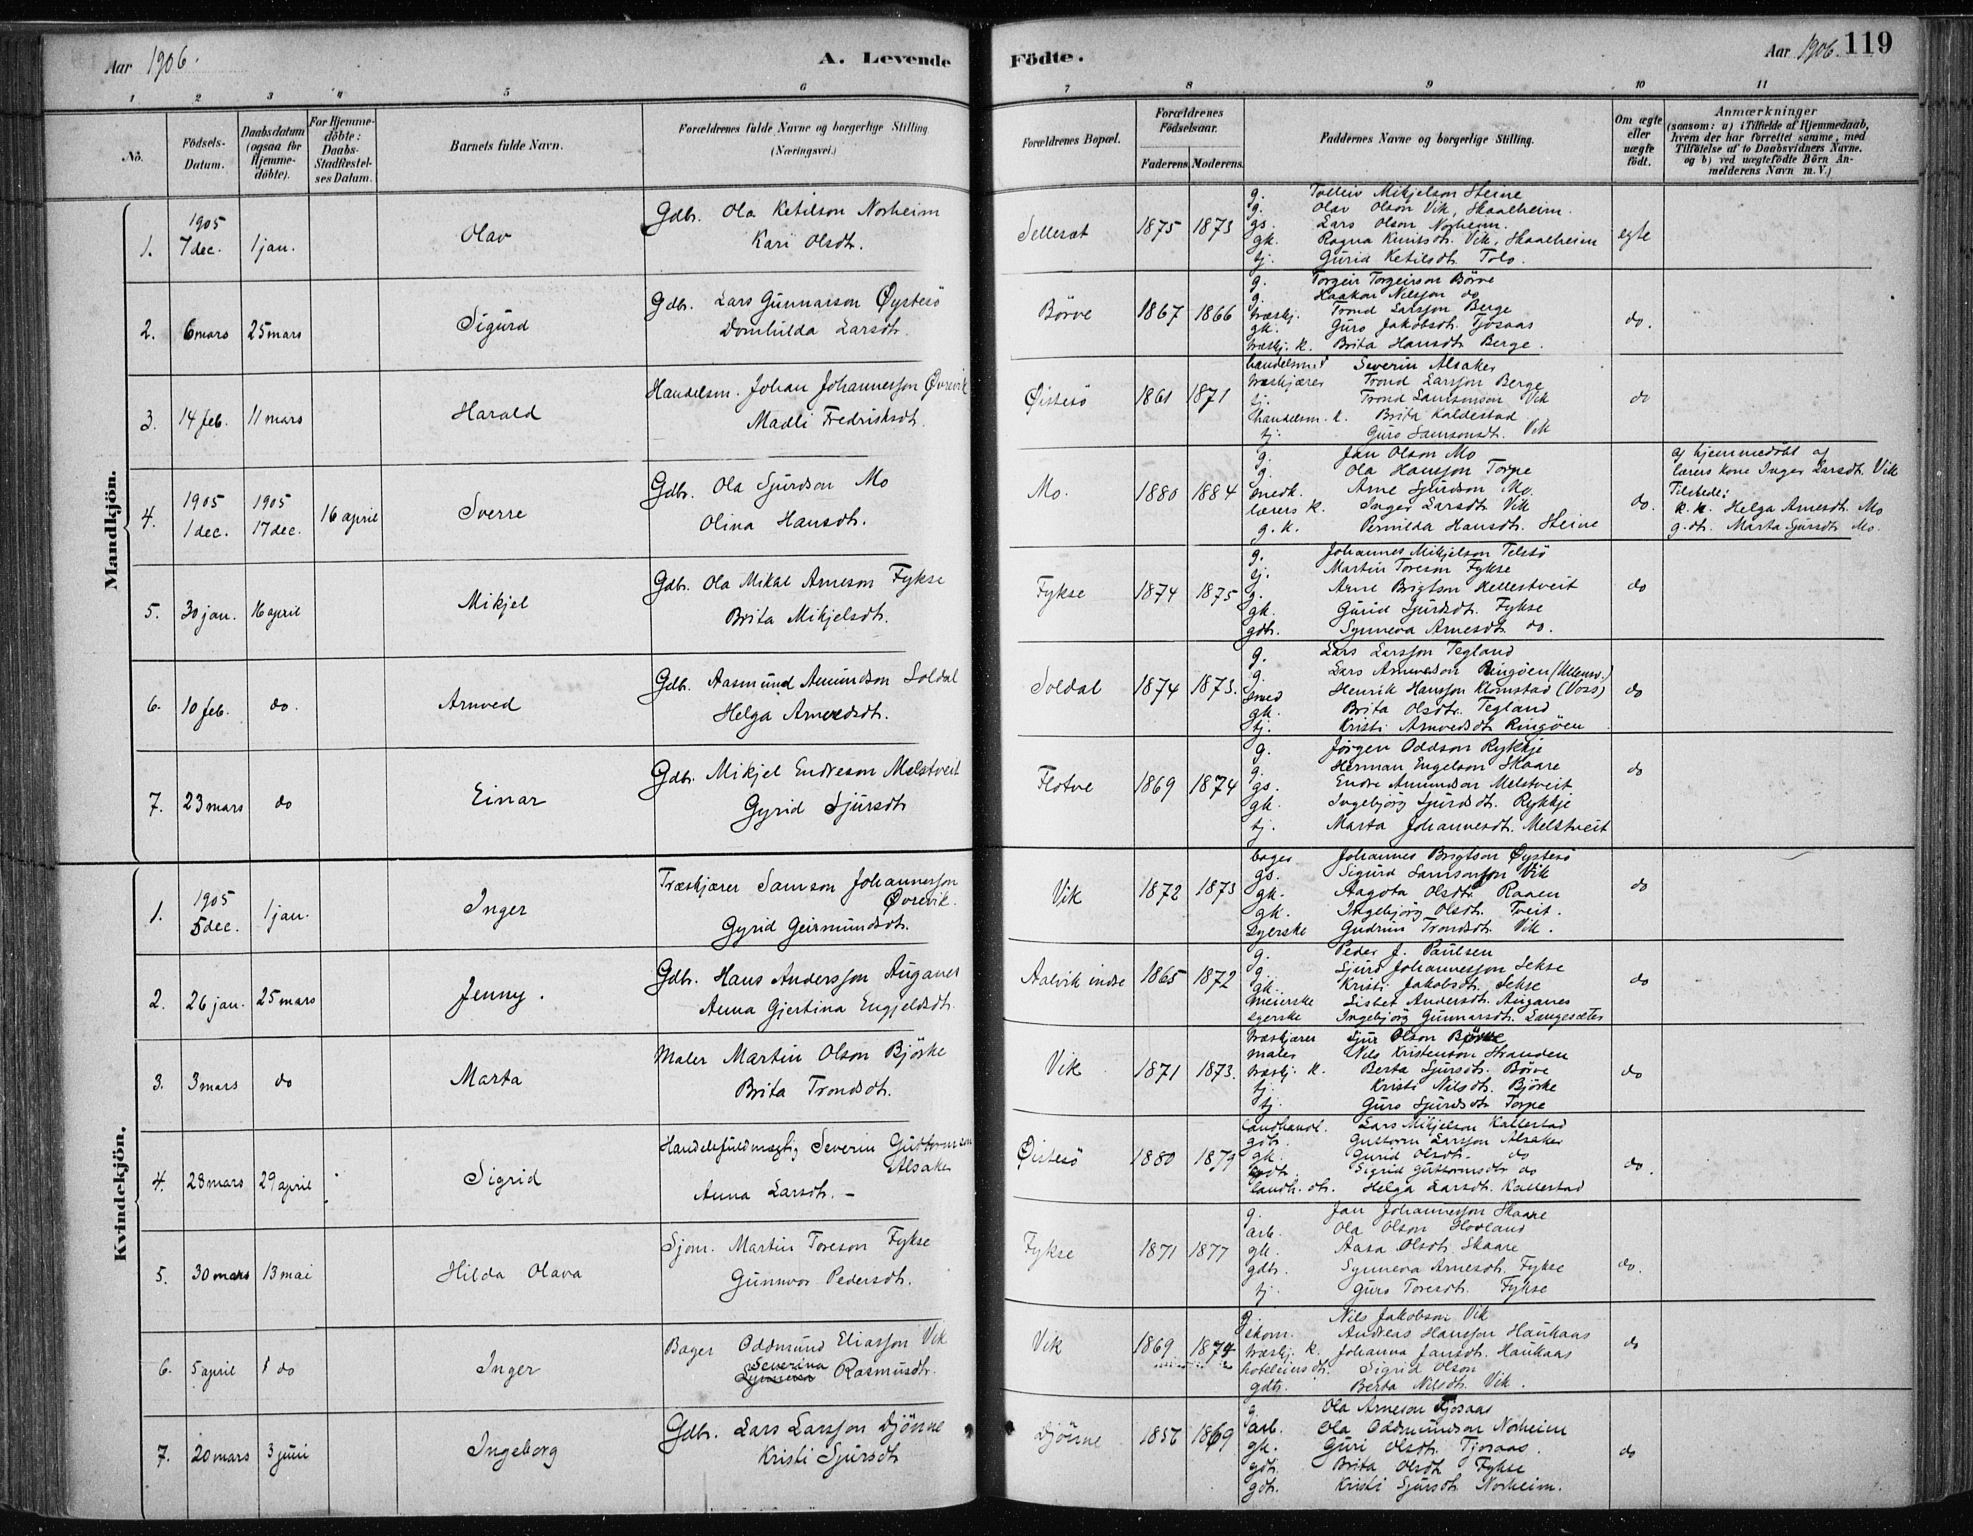 Aar 1906.
A. Levende
Födte.
Aar 1906. 119
1 2 3 4 5 6 7 8 9 10 11
Nö.
Födsels-Datum.
Daabsdatum (ogsaa for Hjemme-döbte).
For Hjemme-döbte: Daabs-Stadfæstel-ses Datum.
Barnets fulde Navn.
Forældrenes fulde Navne og borgerlige Stilling
(Næringsvei.)
Forældrenes Bopæl.
Forældrenes Födselsaar.
Faderens Moderens.
Faddernes Navne og borgerlige Stilling.
Om ægte eller uægte födt.
Anmærkninger
(saasom: a) i Tilfælde af Hjemmedaab,
hvem der har forrettet samme, med
Tilföielse af to Daabsvidners Navne.
og b) ved uægtefödte Börn An-
melderens Navn m. V.)
Mandkjön.
1. 1905 7 dec. 1 jan. Olav
Gdbr. Ola Ketilson Norheim
Kari Olsdt.
Selleræt 1875 1873
g. Tolleiv Mikjelson Steine
g. Olav Olson Vik, Skaalheim.
gs. Lars Olson Norheim.
gk. Ragna Knutsdt. Vik, Skaalheim
tj. Gurid Ketilsdt. Tolo.
egte
2. 6 mars 25 mars Sigurd
Gdbr. Lars Gunnarson Øystesö
Domhilda Larsdt.
Börve 1867 1866
g. Torgeir Torgeirson Börve
g. Haakon Nilsson do
træskj. Trond Larsson Berge
gk. Guro Jakobsdt. Tjosaas
træskj. k. Brita Hansdt. Berge.
do.
3. 14 feb. 11 mars Harald
Handelsm. Johan Johannesson Øvrevik
Madli Fredriksdt.
Øistesö 1861 1871
handelsm. Severin Alsaker
træskjærer Trond Larsson Berge
tj. Trond Samsonson Vik
handelsm. k. Brita Kaldestad
tj. Guro Samsonsdt. Vik
do
4. 1905 1 dec. 1905 17 dec. 16 april Sverre
Gdbr. Ola Sjurdson Mo
Olina Hansdt.
Mo. 1880 1884
g. Jan Olson Mo
g. Ola Hansson Torpe
smedk. Arne Sjurdson Mo.
lærers k. Inger Larsdt. Vik
g. k. Pernilda Hansdt. Steine
do.
hjemmedöbt af
lærers kone Inger Larsdt. Vik
Tilstede:
k. k. Helga Arnesdt. Mo
g. dt. Marta Sjursdt. Mo.
5. 30 jan. 16 april Mikjel
Gdbr. Ola Mikal Arneson Fykse
Brita Mikjelsdt.
Fykse 1874 1875
g. Johannes Mikjelson Telstö
tj. Martin Toreson Fykse
g. Arne Brigtson Kellestveit
gk. Gurid Sjurdsdt. Fykse
gdt. Synneva Arnesdt. do.
do
6. 10 feb. do. Arnved
Gdbr. Aasmund Amundson Soldal
Helga Arnvedsdt.
Soldal 1874 1873.
g. Lars Larsson Tegland
g. Lars Arnvedson Ringöen (Ullensv.)
smed Henrik Hansson Klömstad (Voss)
gk. Brita Olsdt. Tegland
tj. Kristi Arnvedsdt Ringöen
do
7. 23 mars do Einar
Gdbr. Mikjel Endreson Melstveit
Gyrid Sjursdt
Flotve 1869 1874
g. Jørgen Oddson Rykkje
g. Herman Engelson Skaare
gs. Endre Amundson Melstveit
gk. Ingebjörg Sjurdsdt. Rykkje
tj. Marta Johannesdt. Melstveit
do
Kvindekjön.
1. 1905 5 dec. 1 jan. Inger
Træskjærer Samson Johannesson
Øvrevik.
Gyrid Geirmundsdt.
Vik 1872 1873
bager Johannes Brigtson Øystesö
gs. Sigurd Samsonson Vik
gk. Aagota Olsdt. Raaen
gk. Ingebjörg Olsdt. Tveit.
syerske Gudrun Trondsdt. Vik.
do
2. 26 jan. 25 mars Jenny.
Gdbr. Hans Andersson Auganes
Anna Gjertina Engjeldsdt.
Aalvik indre 1865 1872
g. Peder J. Paulsen
g. Sjurd Johannesson Sekse
gk. Kristi Jakobsdt. Sekse
meierske Lisbet Andersdt. Auganes
syerske Ingebjörg Gunnarsdt. Langesæter
do
3. 3 mars do Marta
Maler Martin Olson Björke
Brita Trondsdt.
Vik 1871 1873.
træskjærer Sjur Olson Börve
maler Nils Kristenson Stranden
træskj. k. Berta Sjursdt. Börve
tj. Kristi Nilsdt. Björke
tj. Guro Sjurdsdt Torpe
do
4. 23 mars 29 april Sigrid
Handelsfuldmægtig Severin Guttormson
Alsaker
Anna Larsdt. –
Øistesö 1880 1879
Landhandl. Lars Mikjelson Kallestad
gdb. Guttorm Larsson Alsaker
gk. Gurid Olsdt. do
gdt. Sigrid Guttormsdt do
landh. dt. Helga Larsdt. Kallestad
do.
5. 30 mars 13 mai Hilda Olava
Sjom. Martin Toreson Fykse
Gunnvor Pedersdt.
Fykse 1871 1877
g. Jan Johannesson Skaare
arb. Ola Olson Hovland
gk. Aasa Olsdt. Skaare
gdt. Synneva Arnesdt. Fykse
tj. Guro Toresdt. Fykse
do.
6. 5 april do Inger
Bager Oddmund Eliasson Vik
Severina
Synneva Rasmusdt.
Vik 1869 1874
g. Nils Jakobson Vik
skom. Andreas Hansson Haukaas
træskj. k. Johanna Jansdt. Haukaas
hoteleiers dt. Sigrid Olson
gdt. Berta Nilsdt. Vik.
do
7. 20 mars 3 juni Ingeborg
Gdbr. Lars Larsson Djönne
Kristi Sjursdt
Djönne 1856 1869
g. Ola Arneson Tjosaas
arb. Ola Oddmundson Norheim
gk. Guri Olsdt. Tjosaas.
gdt. Brita Olsdt Fykse
gdt. Kristi Sjursdt Norheim.
do